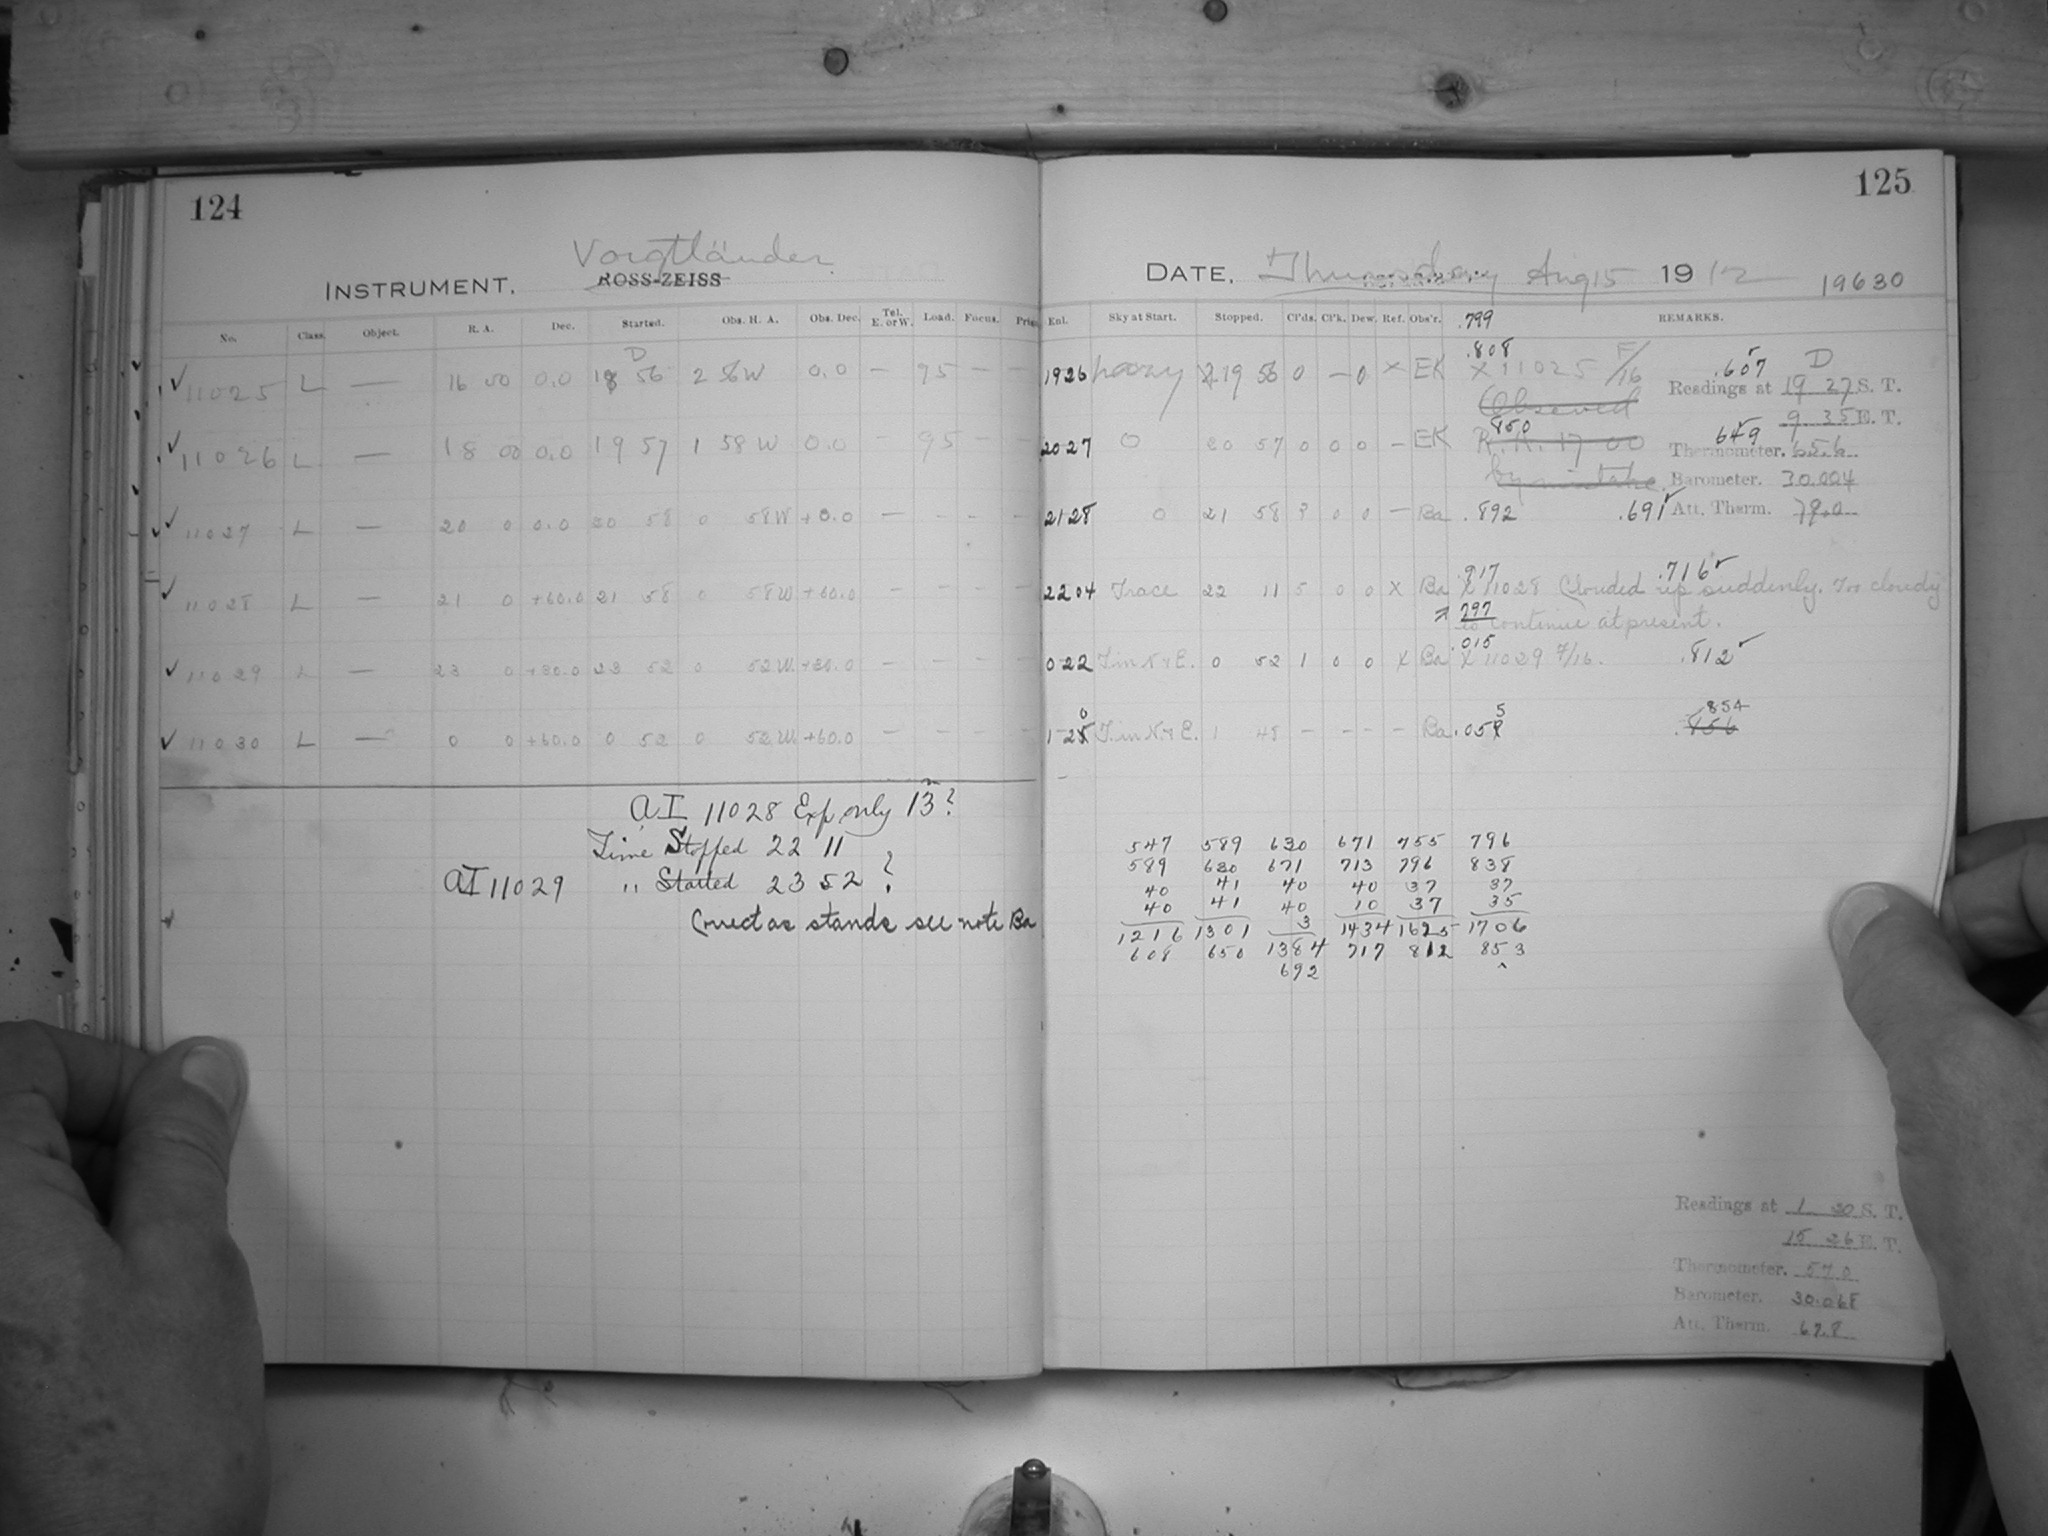 124
125
Voigtländer
INSTRUMENT. ROSS-ZEISS
DATE, Thursday Aug 15 1912 19630
No. Class. Object. R. A. Dec. Started. Obs. H. A. Obs. Dec. Tel. E. or W. Load. Focus. Enl. Sky at Start. Stopped. Cl'ds. Cl'k. Dew. Ref. Obs'r. .799 REMARKS.
D .808
11025 L — 16 00 0.0 18 56 2 56 W 0.0 — 95 — — 1926 hoozy 19 56 0 — 0 x EK X 11025 F/16 .607 D
Readings at 19 27 S. T.
Observed 9 35 E. T.
.850 649
11026 L — 18 00 0.0 19 57 1 58 W 0.0 — 95 — — 2027 0 20 57 0 0 0 — EK R.A. 17 00 Thermometer. 65.6
by mistake. Barometer. 30.004
11027 L — 20 0 0.0 20 58 0 58 W +0.0 — — — — 2128 0 21 58 ? 0 0 — Ba .892 .691 Att. Therm. 79.0
.917 .716
11028 L — 21 0 +60.0 21 58 0 58 W +60.0 — — — — 2204 Trace 22 11 5 0 0 X Ba X 11028 Clouded up suddenly. Too cloudy
797
to continue at present.
.015
11029 L — 23 0 +30.0 23 52 0 52 W. +30.0 — — — — 022 T. in N & E. 0 52 1 0 0 X Ba X 11029 F/16. .812
0 5 854
11030 L — 0 0 +60.0 0 52 0 52 W. +60.0 — — — — 1 25 T. in N & E. 1 48 — — — — Ba .058 .856
AI 11028 Exp. only 13m?
Time Stopped 22 11
AI 11029 " Started 23 52 ?
Correct as stands see note Ba
547 589 630 671 755 796
589 630 671 713 796 838
40 41 40 40 37 37
40 41 40 10 37 35
1216 1301 3 1434 1625 1706
608 650 1384 717 812 853
692
Readings at 1 30 S. T.
15 26 E. T.
Thermometer. 57.0
Barometer. 30.068
Att. Therm. 67.8